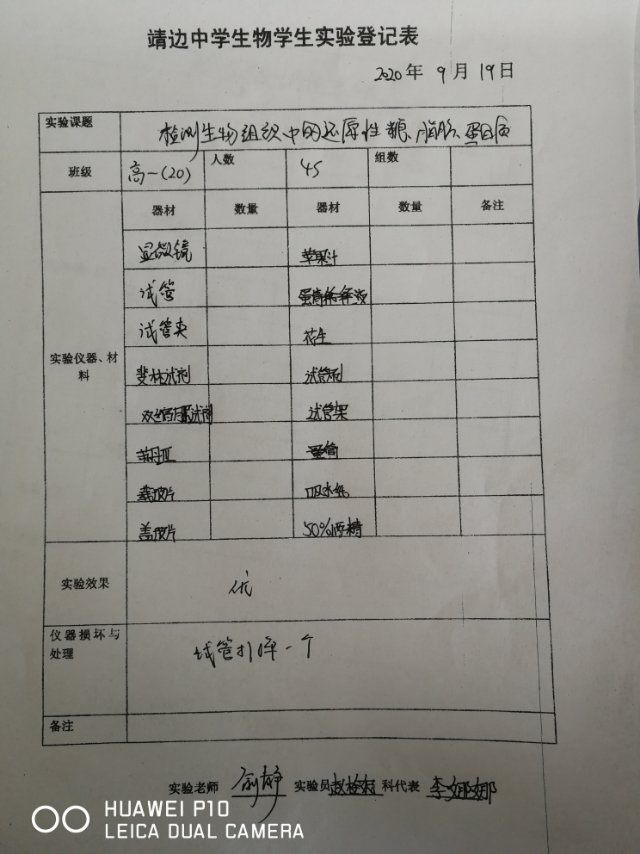 靖边中学生物学生实验登记表
2020年 9月 19日
实验课题 检测生物组织中的还原性糖、脂肪、蛋白质
班级 高一(20) 人数 45 组数
器材 数量 器材 数量 备注
显微镜 苹果汁
试管
试管夹 花生
实验仪器、材料
斐林试剂 试管刷
双缩脲试剂 试管架
苏丹III
载玻片 吸水纸
盖玻片 50%酒精
实验效果 优
仪器损坏与
处理 试管打碎一个
备注
实验老师 实验员 科代表 李娜娜
HUAWEI P10
LEICA DUAL CAMERA